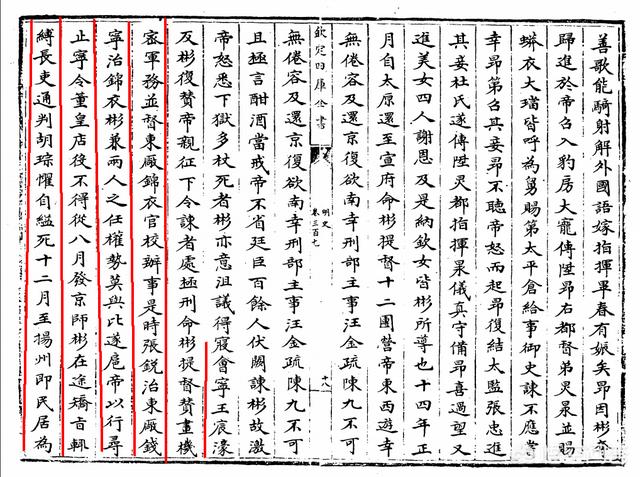 善歌能騎射解外國語嫁指揮畢春有娠矣昂因彬奪
歸進於帝召入豹房大寵傳陞昂右都督弟炅杲並賜
蟒衣大璫皆呼為舅賜第太平倉給事御史諫不應嘗
幸昂第召其妾昂不聽帝怒而起昂復結太監張忠進
其妾杜氏遂傳陞炅都指揮杲儀真守備昂喜過望又
進美女四人謝恩及是納欽女皆彬所導也十四年正
月自太原還至宣府命彬提督十二團營帝東西遊幸
無倦容及還京復欲南幸刑部主事汪金疏陳九不可
欽定四庫全書
明史
卷三百七
十八
無倦容及還京復欲南幸刑部主事汪金疏陳九不可
且極言酣酒當戒帝不省廷臣百餘人伏闕諫彬故激
帝怒悉下獄多杖死者彬亦意沮議得寢會寧王宸濠
及彬復贊帝親征下令諫者處極刑命彬提督贊畫機
密軍務並督東厰錦衣官校辦事是時張銳治東厰錢
寧治錦衣彬兼兩人之任權勢莫與比遂扈帝以行尋
止寧令董皇店役不得從八月發京師彬在途矯旨輒
縛長吏通判胡琮懼自縊死十二月至揚州即民居為